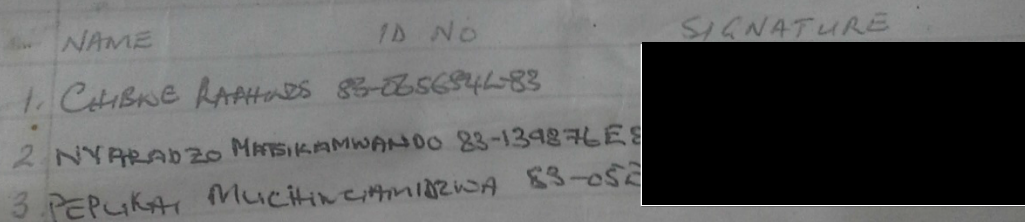 NAME ID NO SIGNATURE
1. 83-065694L-83
2 NYARADZO MATSIKAMWANDO 83-139876E8
3. PEPUKAI MUCHINGAMIDZWA 83-052